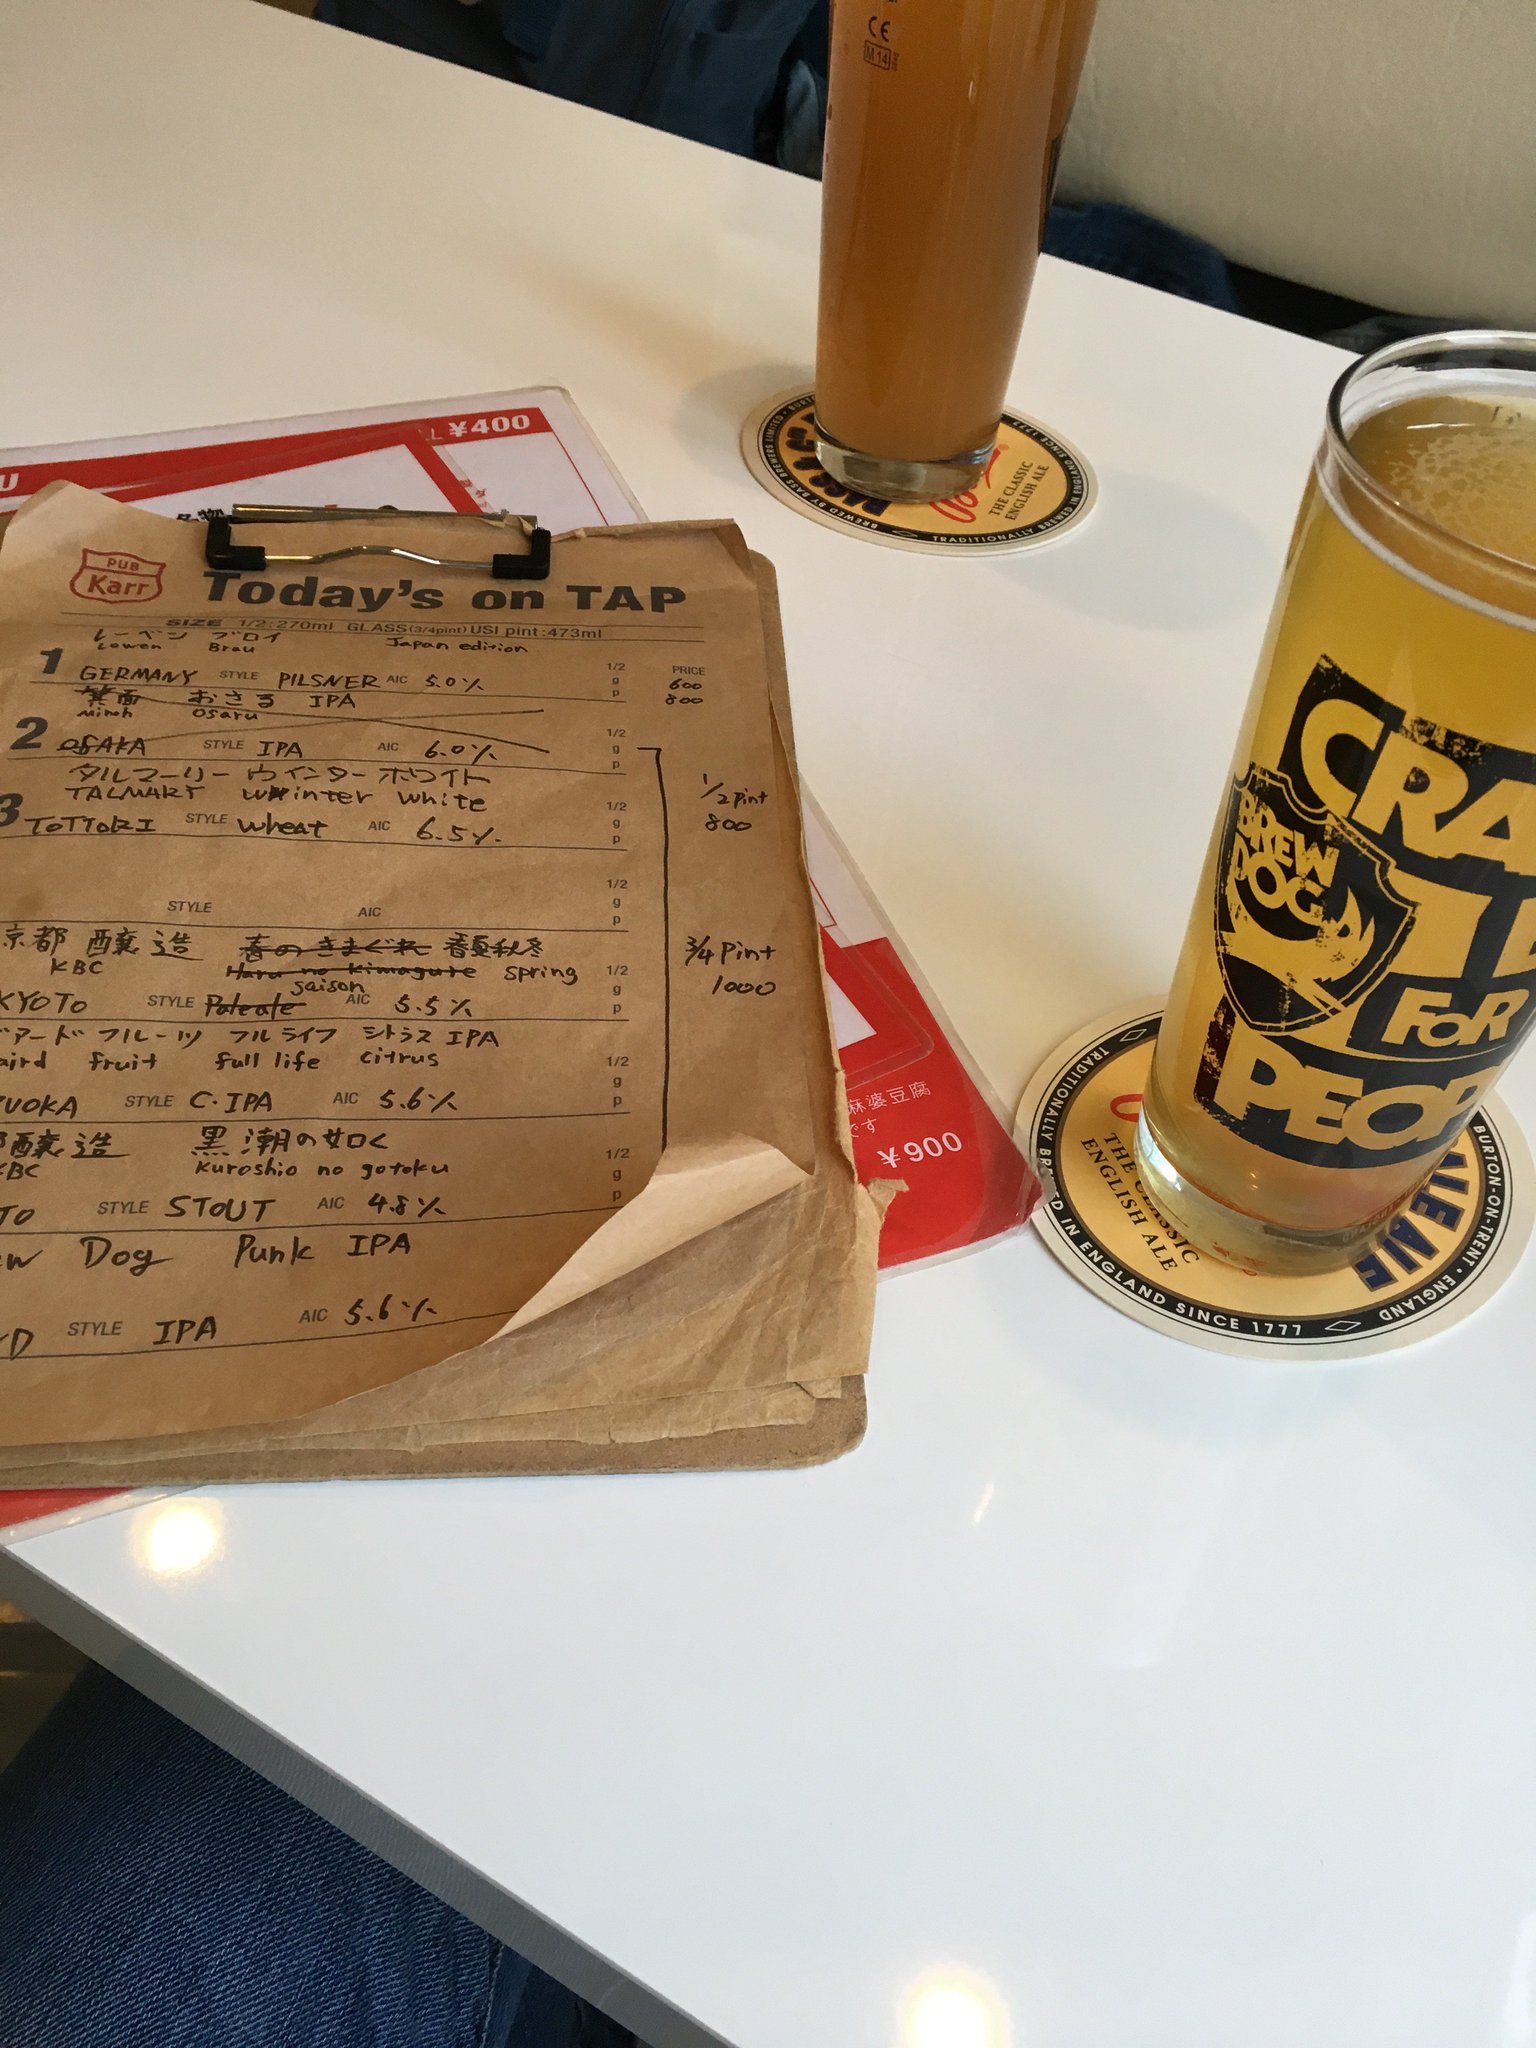 CE
M 14
¥400
PUB
Karr
Today's on TAP
SIZE 1/2:270ml GLASS(3/4pint) US1 pint:473ml
レーベン ブロイ
Lowen Brau Japan edition
1 GERMANY STYLE PILSNER AIC 5.0% 1/2 g p
PRICE
600
800
箕面 おさる IPA
Minoh Osaru
2 OSAKA STYLE IPA AIC 6.0% 1/2 g
タルマーリー ウインター ホワイト
TALMARY Winter white
3 TOTTORI STYLE wheat AIC 6.5% 1/2 g p
1/2 pint
800
STYLE AIC 1/2 g p
京都醸造 春のきまぐれ 春夏秋冬
KBC Haru no kimagure spring
saison
KYOTO STYLE Paleale AIC 5.5% 1/2 g p
3/4 pint
1000
アード フルーツ フルライフ シトラス IPA
aird fruit full life citrus
ZUOKA STYLE C.IPA AIC 5.6% 1/2 g p
醸造 黒潮の如く
KBC Kuroshio no gotoku
TO STYLE STOUT AIC 4.8% 1/2 g p
ew Dog Punk IPA
STYLE IPA AIC 5.6%
麻婆豆腐
です
¥900
BREWED BY BASS BREWERS LIMITED
THE CLASSIC
ENGLISH ALE
TRADITIONALLY BREWED IN ENGLAND SINCE 1777
CRA
BREW
DOG
FOR
PEOP
THE CLASSIC
ENGLISH ALE
ALE
TRADITIONALLY BRE
D IN ENGLAND SINCE 1777
BURTON-ON-TRENT · ENGLAND